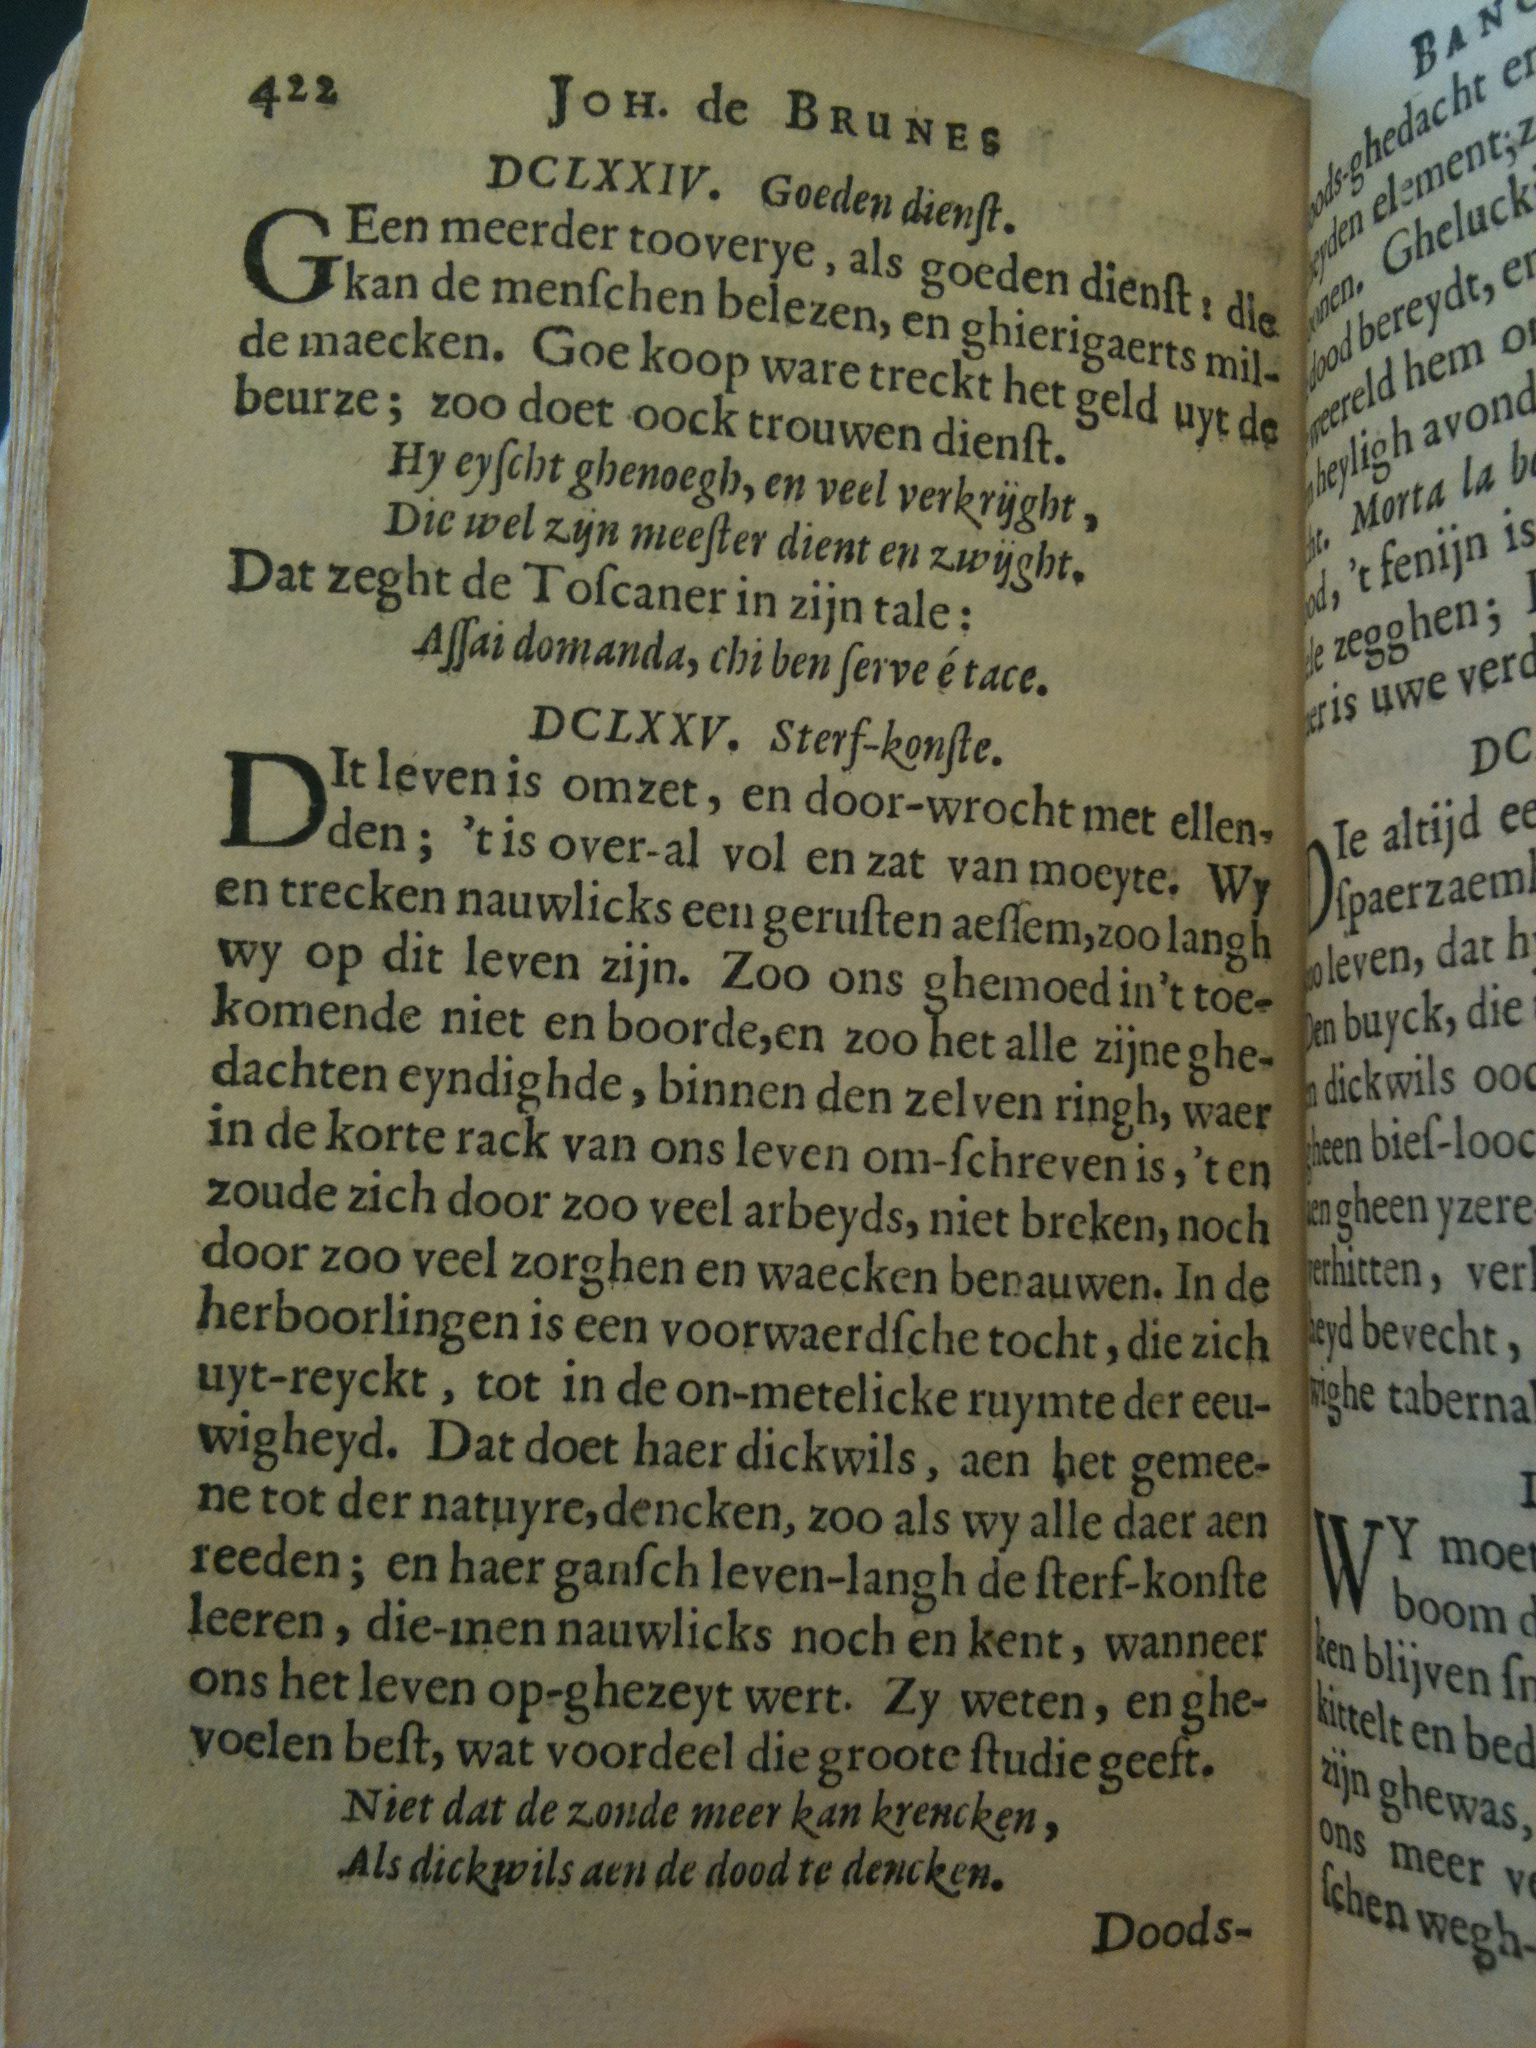 422 JOH. de BRUNES
DCLXXIV. Goeden dienſt.
GEen meerder tooverye, als goeden dienſt: die
kan de menſchen belezen, en ghierigaerts mil-
de maecken. Goe koop ware treckt het geld uyt de
beurze; zoo doet oock trouwen dienſt.
Hy eyſcht ghenoegh, en veel verkrijght,
Die wel zijn meeſter dient en zwijght.
Dat zeght de Toſcaner in zijn tale:
Aſſai domanda, chi ben ſerve é tace.
DCLXXV. Sterf-konſte.
DIt leven is omzet, en door-wrocht met ellen-
den; 't is over-al vol en zat van moeyte. Wy
en trecken nauwlicks een geruſten aeſſem, zoo langh
wy op dit leven zijn. Zoo ons ghemoed in't toe-
komende niet en boorde, en zoo het alle zijne ghe-
dachten eyndighde, binnen den zelven ringh, waer
in de korte rack van ons leven om-ſchreven is, 't en
zoude zich door zoo veel arbeyds, niet breken, noch
door zoo veel zorghen en waecken benauwen. In de
herboorlingen is een voorwaerdſche tocht, die zich
uyt-reyckt, tot in de on-metelicke ruymte der eeu-
wigheyd. Dat doet haer dickwils, aen het gemee-
ne tot der natuyre, dencken, zoo als wy alle daer aen
reeden; en haer ganſch leven-langh de ſterf-konſte
leeren, die-men nauwlicks noch en kent, wanneer
ons het leven op-ghezeyt wert. Zy weten, en ghe-
voelen beſt, wat voordeel die groote ſtudie geeft.
Niet dat de zonde meer kan krencken,
Als dickwils aen de dood te dencken.
Doods-
ghedacht
element;
Gheluck
bereydt,
hem
avond
Morta la
't fenijn is
zegghen;
is uwe
DC
DIe altijd
ſpaerzaem
leven, dat
buyck, die
dickwils
bieſ-looc
gheen yzere
verl
bevecht,
taberna
WY moet
boom
ken blijven
kittelt en
zijn ghewas,
ons meer
ſchen wegh-